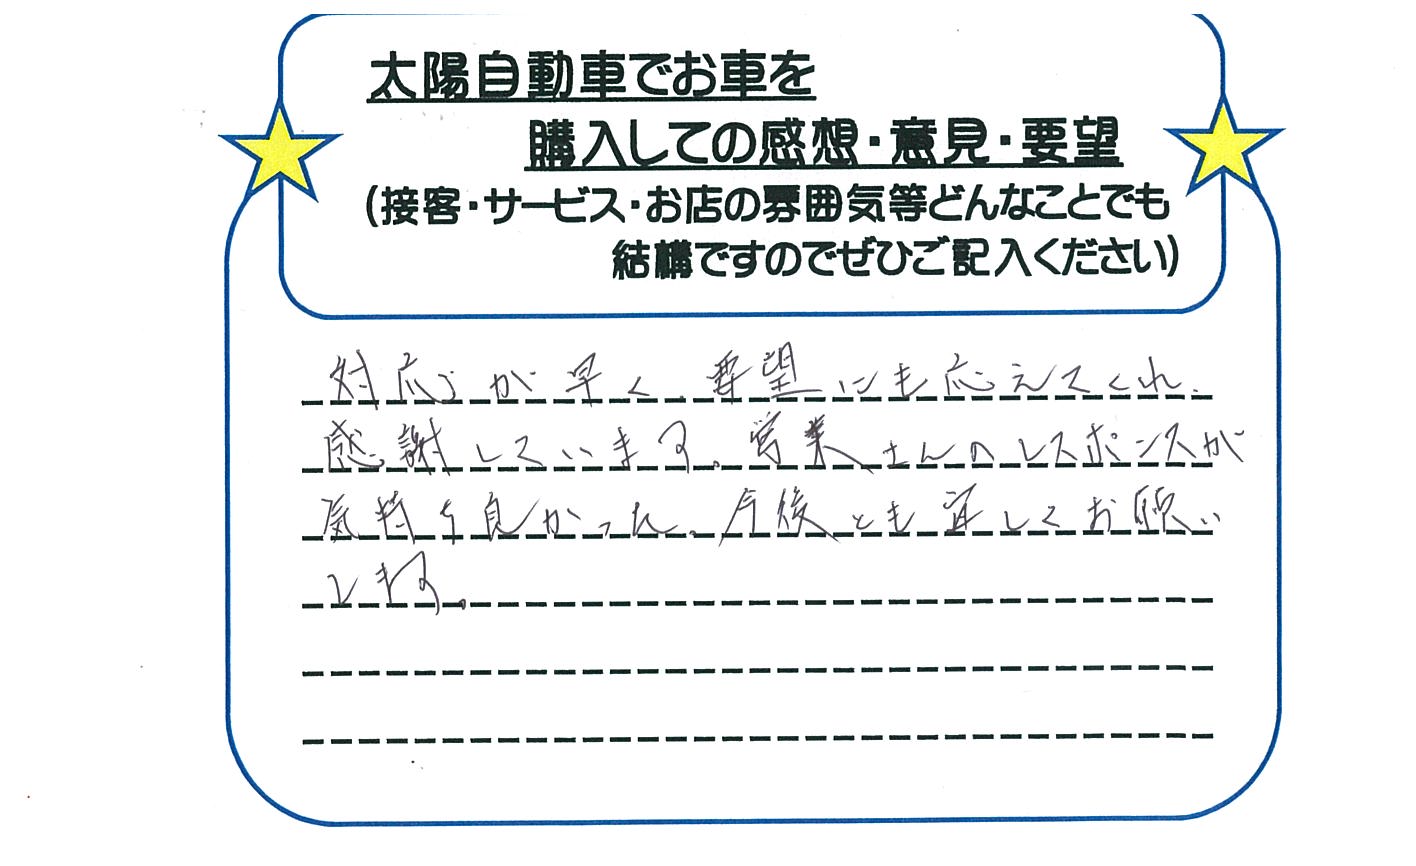 太陽自動車でお車を
購入しての感想・意見・要望
(接客・サービス・お店の雰囲気等どんなことでも
結構ですのでぜひご記入ください)
対応が早く、要望にも応えてくれ、
感謝しています。営業さんのレスポンスが
気持ち良かった。今後とも宜しくお願い
します。